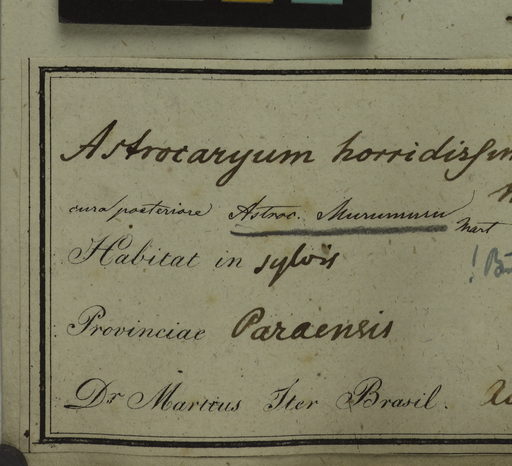 Astrocaryum horridissm
cura posteriore Astroc. Murumuru
Mart
Habitat in sylvis
Provinciae Paraensis
Dr Martius Iter Brasil.